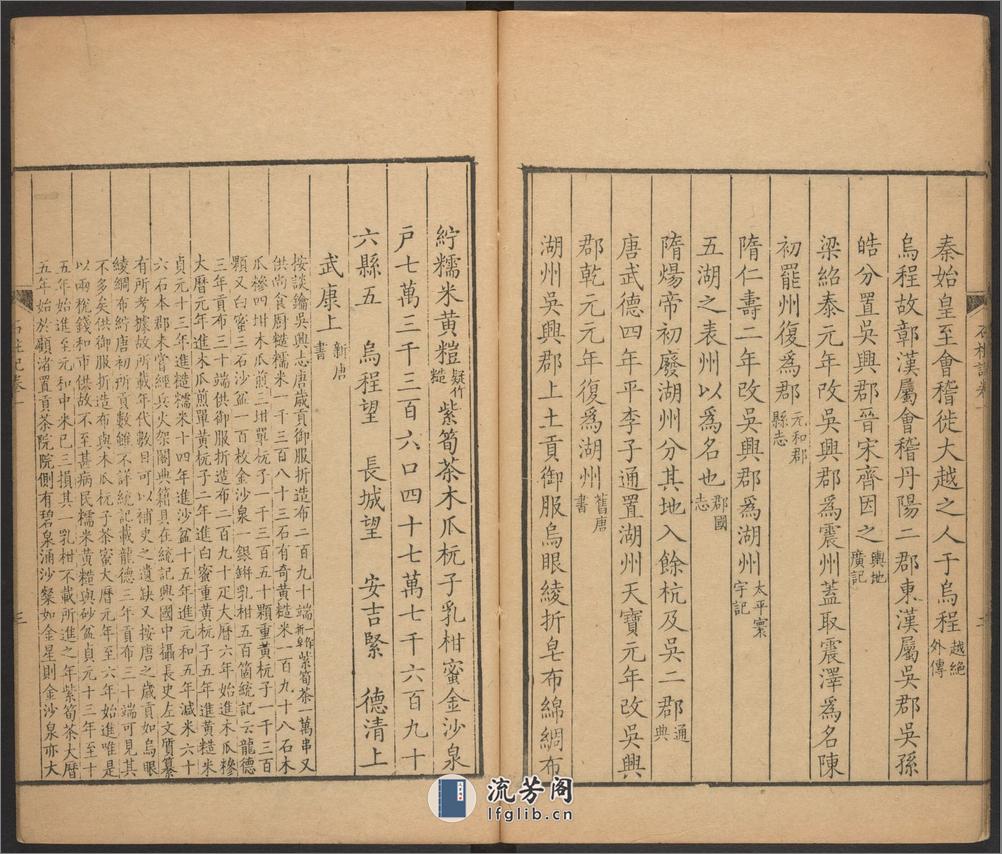 秦始皇至會稽徙大越之人于烏程越絕外傳
烏程故鄣漢屬會稽丹陽二郡東漢屬吳郡吳孫
皓分置吳興郡晉宋齊因之輿地廣記
梁紹泰元年改吳興郡爲震州蓋取震澤為名陳
初罷州復爲郡元和郡縣志
隋仁壽二年改吳興郡爲湖州太平寰宇記
五湖之表州以爲名也郡國志
隋煬帝初廢湖州分其地入餘杭及吳二郡通典
唐武德四年平李子通置湖州天寶元年改吳興
郡乾元元年復爲湖州舊唐書
湖州吳興郡上土貢御服烏眼綾折皂布綿綢布
紵糯米黃䊗疑作糙紫筍茶木瓜杬子乳柑蜜金沙泉
戶七萬三千三百六口四十七萬七千六百九十
六縣五 烏程望 長城望 安吉緊 德清上
武康上新唐書
按談鑰吳興志唐歲貢御服折造布二百九十端紫筍茶一萬串又
供尚食厨糙糯米一千三百八十三石有奇黃糙米一百九十八石木
瓜糝四坩木瓜煎三坩單杬子一千三百五十顆重黃杬子一千三百
顆又白蜜三石沙盆一百枚金沙泉一銀缾乳柑五百箇統記云龍德
三年貢布三十端供御服折造布二百九十疋大曆六年始進木瓜糝
大曆元年進木瓜煎單黃杬子二年進白蜜重黃杬子五年進黃糙米
貞元十三年進糙糯米十四年進沙盆十五年進元和五年減米六十
六石本郡未嘗經兵火架閣典籍具在統記興國中攝長史左文質纂
有所考據故所載年代數目可以補史之遺缺又按唐之歲貢如烏眼
綾綢布紵唐初所貢數雖不詳統記載龍德三年貢布三十端可見其
不多矣供御服折造布與木瓜杬子茶蜜大曆元年至六年始進唯是
以兩稅錢和市供故不至甚病民糯米黃糙與砂盆貞元十三年至十
五年始進至元和中來已三損其一乳柑不載所進之年紫筍茶大曆
五年始於顧渚置貢茶院院側有碧泉涌沙粲如金星則金沙泉亦大
石柱記卷一
三
流芳阁
lfglib.cn